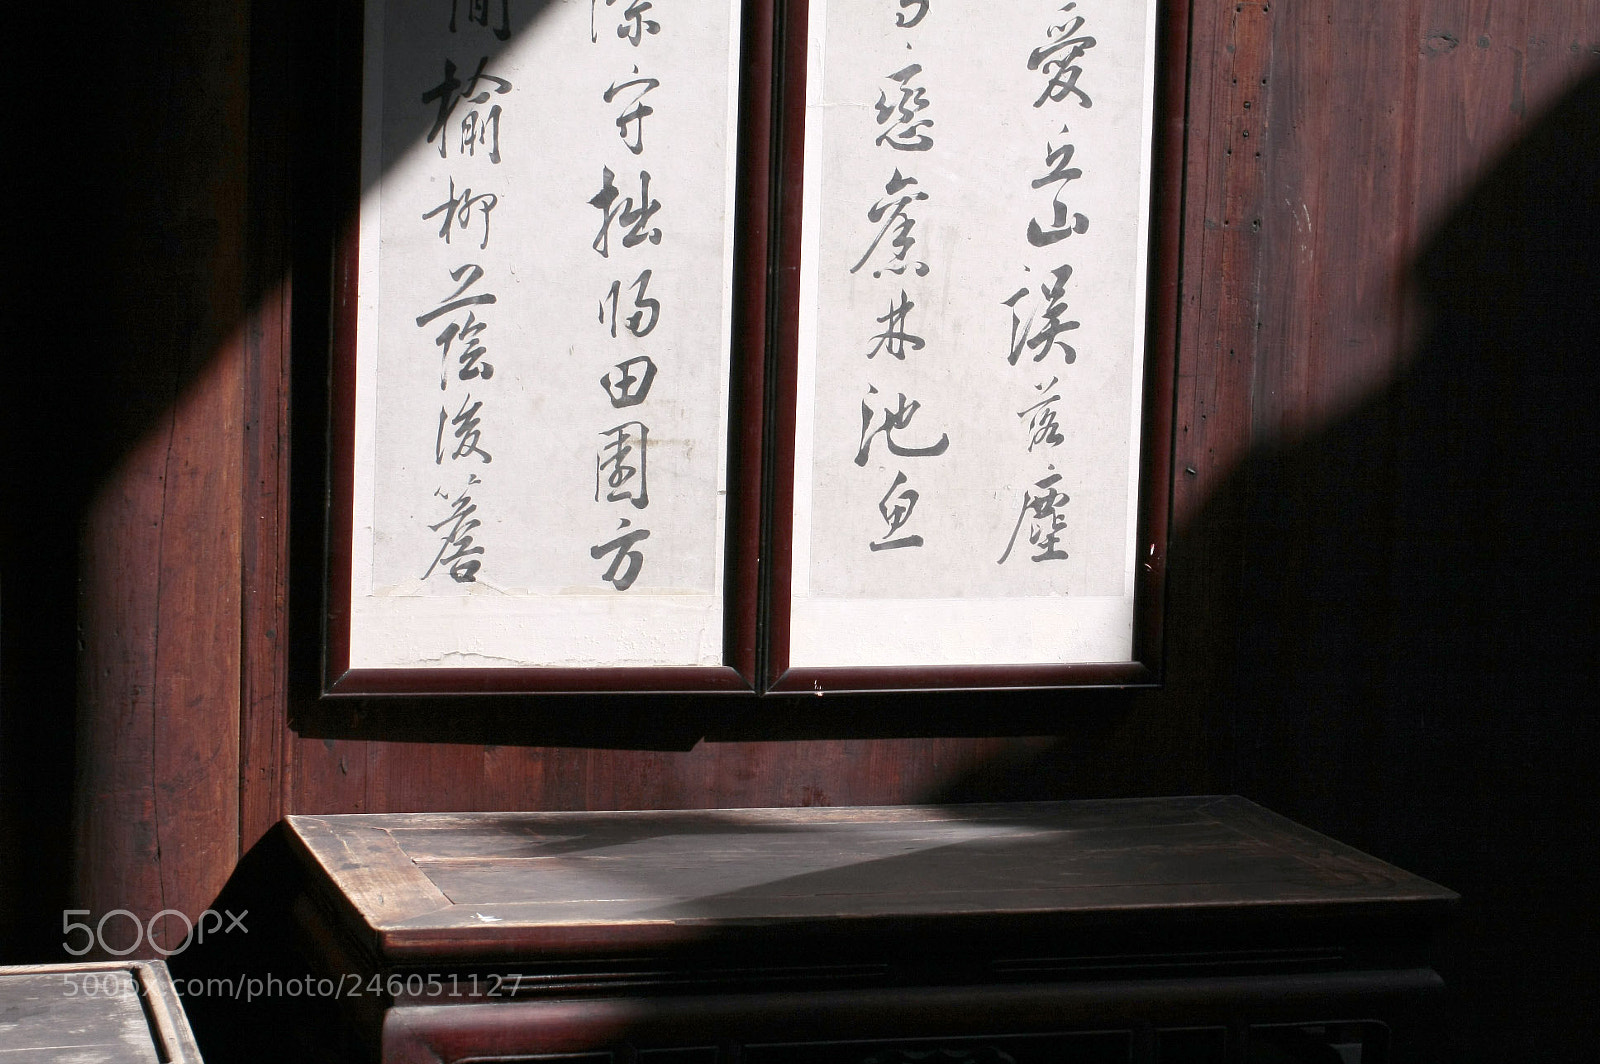 愛丘山誤落塵
戀舊林池魚
際守拙歸田園方
間榆柳蔭後簷
500px
500px.com/photo/246051127